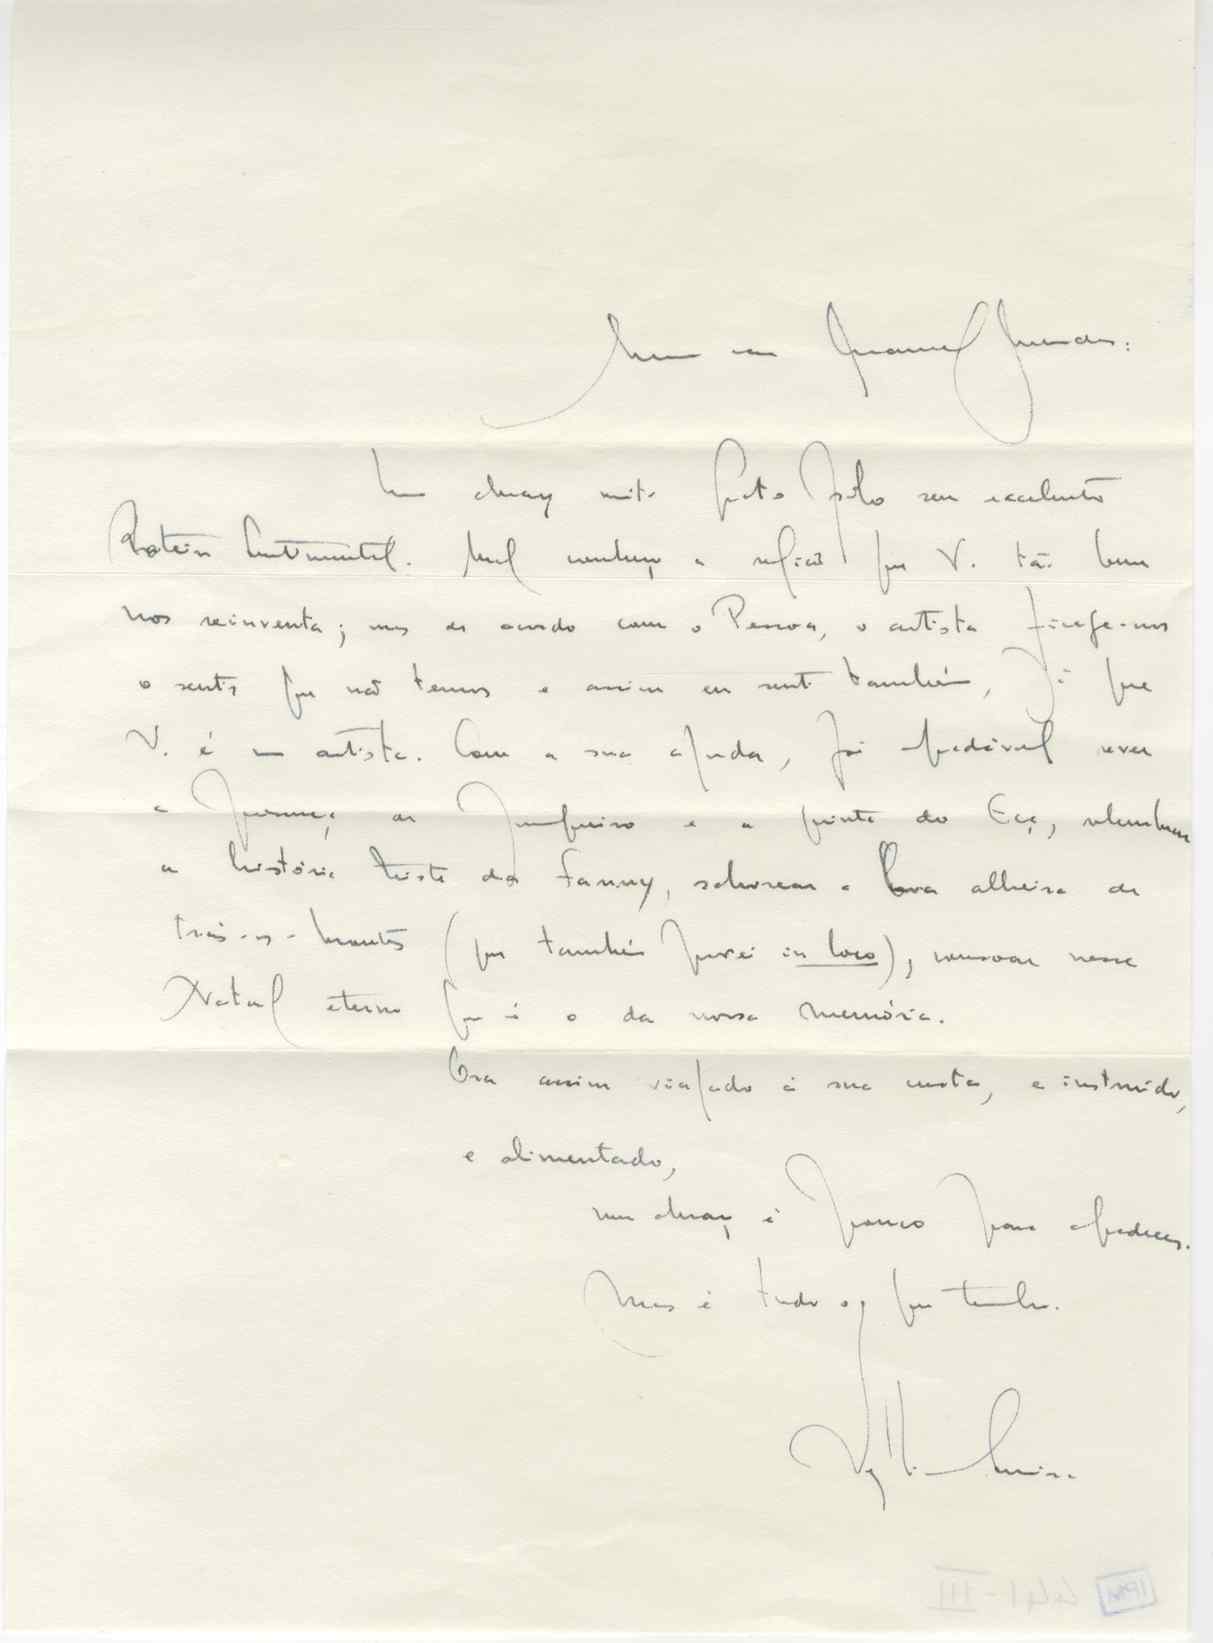 Meu caro Manuel Mendes:
Um abraço muito grato pelo seu excelente
Roteiro Sentimental. Mal conheço a região que V. tão bem
nos reinventa; mas de acordo com o Pessoa, o artista finge-nos
o sentir que não temos e assim eu senti também, já que
V. é um artista. Com a sua ajuda, foi agradável rever
a presença de Junqueiro e a quinta do Eça, relembrar
a história triste da Fanny, saborear a boa alheira de
Trás-os-Montes (que também provei in loco), consoar nesse
Natal eterno que é o da nossa memória.
Ora assim viajado à sua custa, e instruído,
e alimentado,
um abraço é pouco para agradecer.
Mas é tudo o que tenho.
Vergílio Ferreira
IPM 441-III